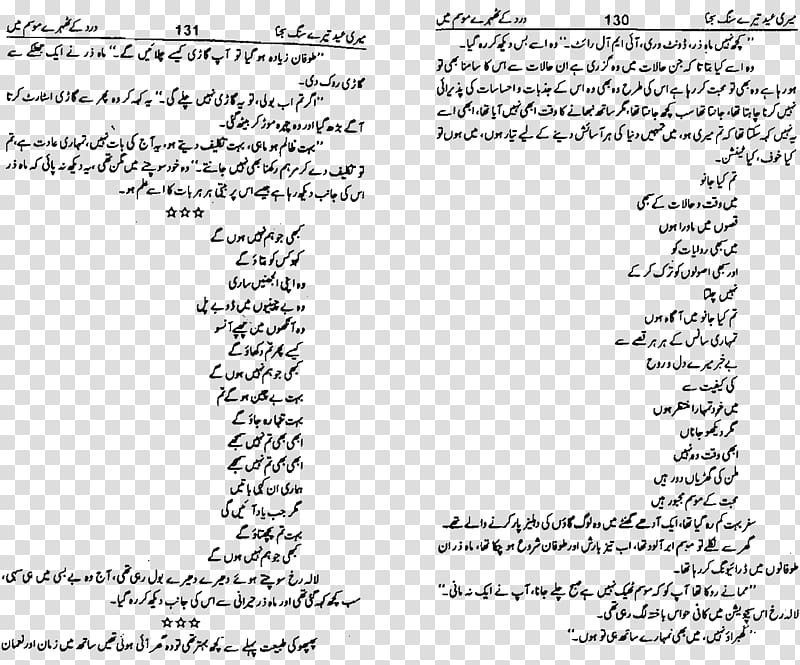 میری عید تیرے سنگ سجنا 130 درد کے ٹھہرے موسم میں
”کچھ نہیں ماہ ذر، ڈونٹ وری، آئی ایم آل رائٹ۔“ وہ اسے بس دیکھ کر رہ گیا۔
وہ اسے کیا بتاتا کہ جن حالات میں وہ گزری ہے ان حالات سے اس کا سامنا بھی تو
ہو رہا ہے وہ بھی تو محبت کر رہا ہے اس کی طرح وہ بھی وہ اس کے جذبات و احساسات کی پذیرائی
نہیں کرنا چاہتا تھا، جانتا تھا سب کچھ جانتا تھا، مگر ساتھ نبھانے کا وقت ابھی نہیں آیا تھا، ابھی اسے
یہ نہیں کہہ سکتا تھا کہ تم میری ہو، میں تمہیں دنیا کی ہر آسائش دینے کے لیے تیار ہوں، میں ہوں تو
کیا خوف، کیا ٹینشن۔
تم کیا جانو
میں وقت و حالات کے سبھی
قصوں میں ماورا ہوں
میں بھی روایات کو
اور سبھی اصولوں کو ترک کر کے
نہیں چلتا
تم کیا جانو میں آگاہ ہوں
تمہاری سانس کے ہر ہر قصے سے
بے خبر میرے دل و روح
کی کیفیت سے
میں خود تمہارا منتظر ہوں
مگر دیکھو جاناں
ابھی وقت وہ نہیں
ملن کی گھڑیاں دور ہیں
محبت کے موسم مجبور ہیں
سفر بہت کم رہ گیا تھا، ایک آدھے گھنٹے میں وہ لوگ گاؤں کی دہلیز پار کرنے والے تھے۔
گھر سے نکلے تو موسم ابر آلود تھا، اب تیز بارش اور طوفان شروع ہو چکا تھا، ماہ ذر ان
طوفانوں میں ڈرائیونگ کر رہا تھا۔
”ممانے روکا تھا آپ کو کہ موسم ٹھیک نہیں ہے صبح چلے جانا، آپ نے ایک نہ مانی۔“
لالہ رخ اس سچویشن میں کافی حواس باختہ لگ رہی تھی۔
”گھبراؤ نہیں، میں بھی تمہارے ساتھ ہی تو ہوں۔“
میری عید تیرے سنگ سجنا 131 درد کے ٹھہرے موسم میں
”طوفان زیادہ ہو گیا تو آپ گاڑی کیسے چلائیں گے۔“ ماہ ذر نے ایک جھٹکے سے
گاڑی روک دی۔
”اگر تم اب بولی، تو یہ گاڑی نہیں چلے گی۔“ یہ کہہ کر وہ پھر سے گاڑی اسٹارٹ کرتا
آگے بڑھ گیا اور وہ چہرہ موڑ کر بیٹھ گئی۔
”بہت ظالم ہو ماہی، بہت تکلیف دیتے ہو، یہ آج کی بات نہیں، تمہاری عادت ہے، تم
تو تکلیف دے کر مرہم رکھنا بھی نہیں جانتے۔“ وہ خود سوچنے میں مگن تھی، یہ دیکھ نہ پائی کہ ماہ ذر
اس کی جانب دیکھ رہا ہے جیسے اس پر بیتی ہر ہر بات کا اسے علم ہو۔
☆☆☆
کبھی جو ہم نہیں ہوں گے
کہو کس کو بتاؤ گے
وہ اپنی الجھنیں ساری
وہ بے چینیوں میں ڈوبے پل
وہ آنکھوں میں چھپے آنسو
کسے پھر تم دکھاؤ گے
کبھی جو ہم نہیں ہوں گے
بہت بے چین ہو گے تم
بہت تنہا رہ جاؤ گے
ابھی بھی تم نہیں سمجھے
ابھی بھی تم نہیں سمجھے
ہماری ان کہی باتیں
مگر جب یاد آئیں گی
بہت تم پچھتاؤ گے
کبھی جو ہم نہیں ہوں گے
لالہ رخ سوچتے ہوئے دھیرے دھیرے بول رہی تھی، آج وہ بے بسی میں ہی سہی،
سب کچھ کہہ گئی تھی اور ماہ ذر حیرانی سے اس کی جانب دیکھ کر رہ گیا۔
☆☆☆
پھپھو کی طبیعت پہلے سے کچھ بہتر تھی تو وہ گھر آئی ہوئی تھیں ساتھ میں زمان اور نعمان